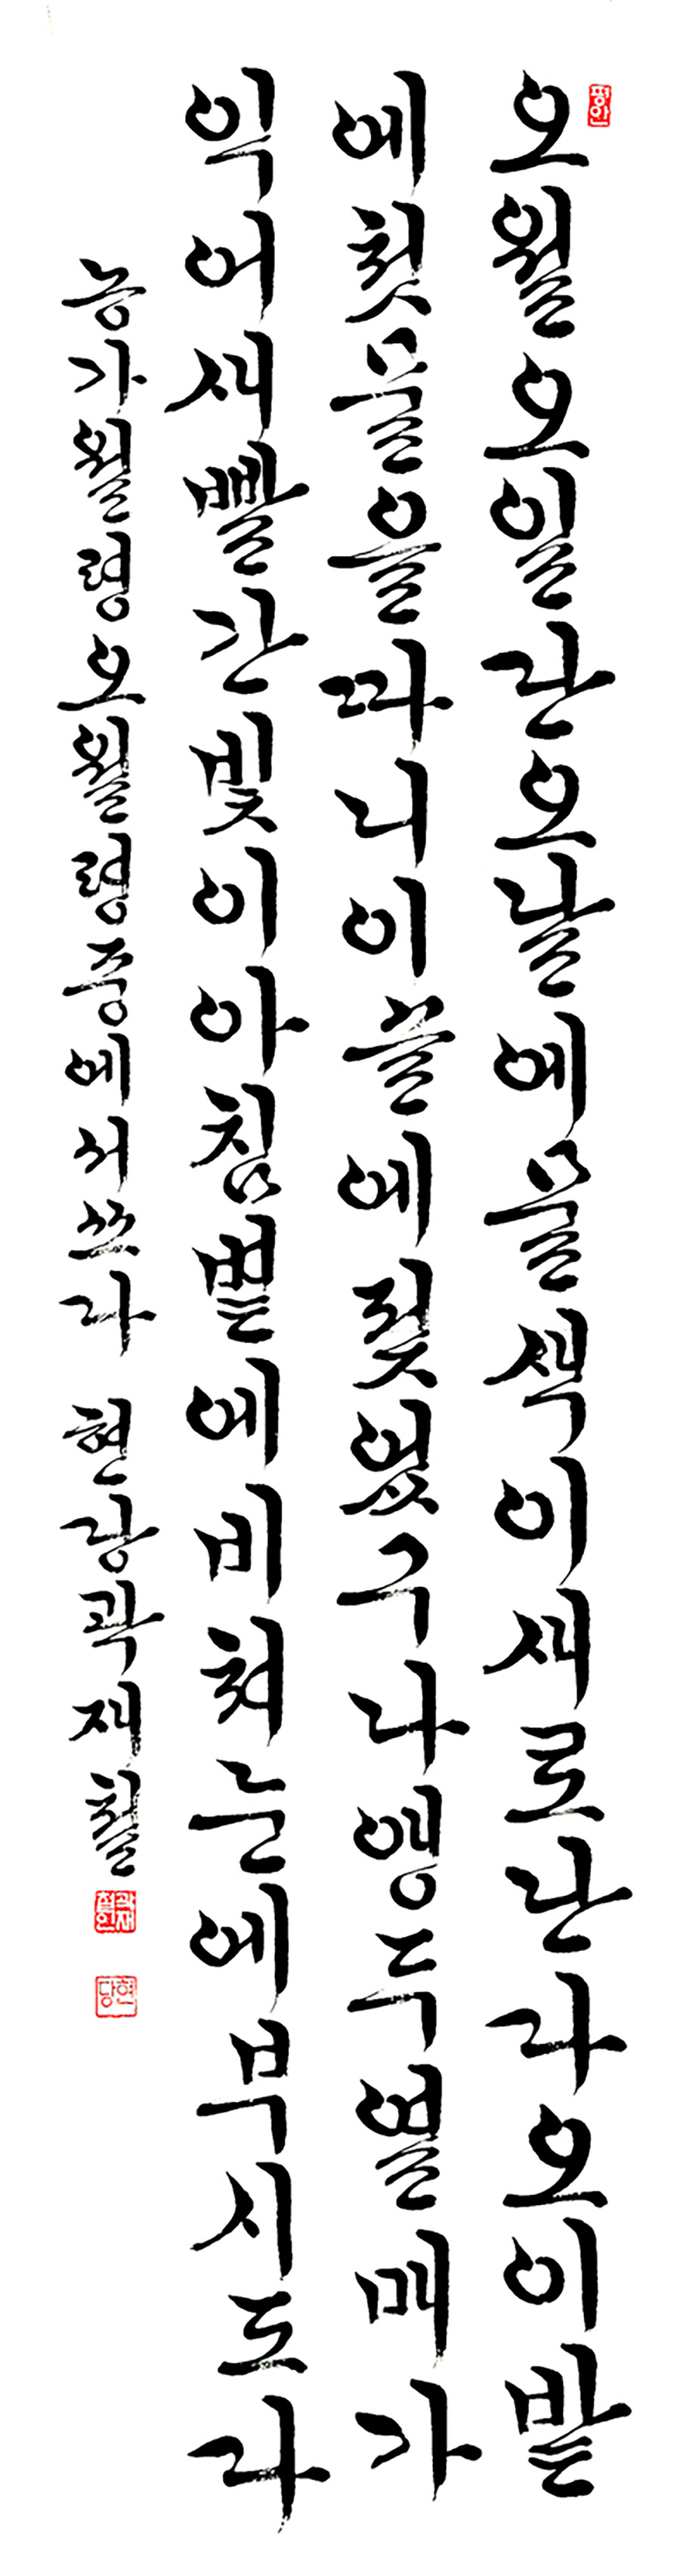 오월오일단오날에물색이새로난다오이밭
에첫물을따니이슬에젖었구나앵두열매가
익어새빨간빛이아침볕에비쳐눈에부시도다
농가월령오월령중에서쓰다 현당곽재철
현당